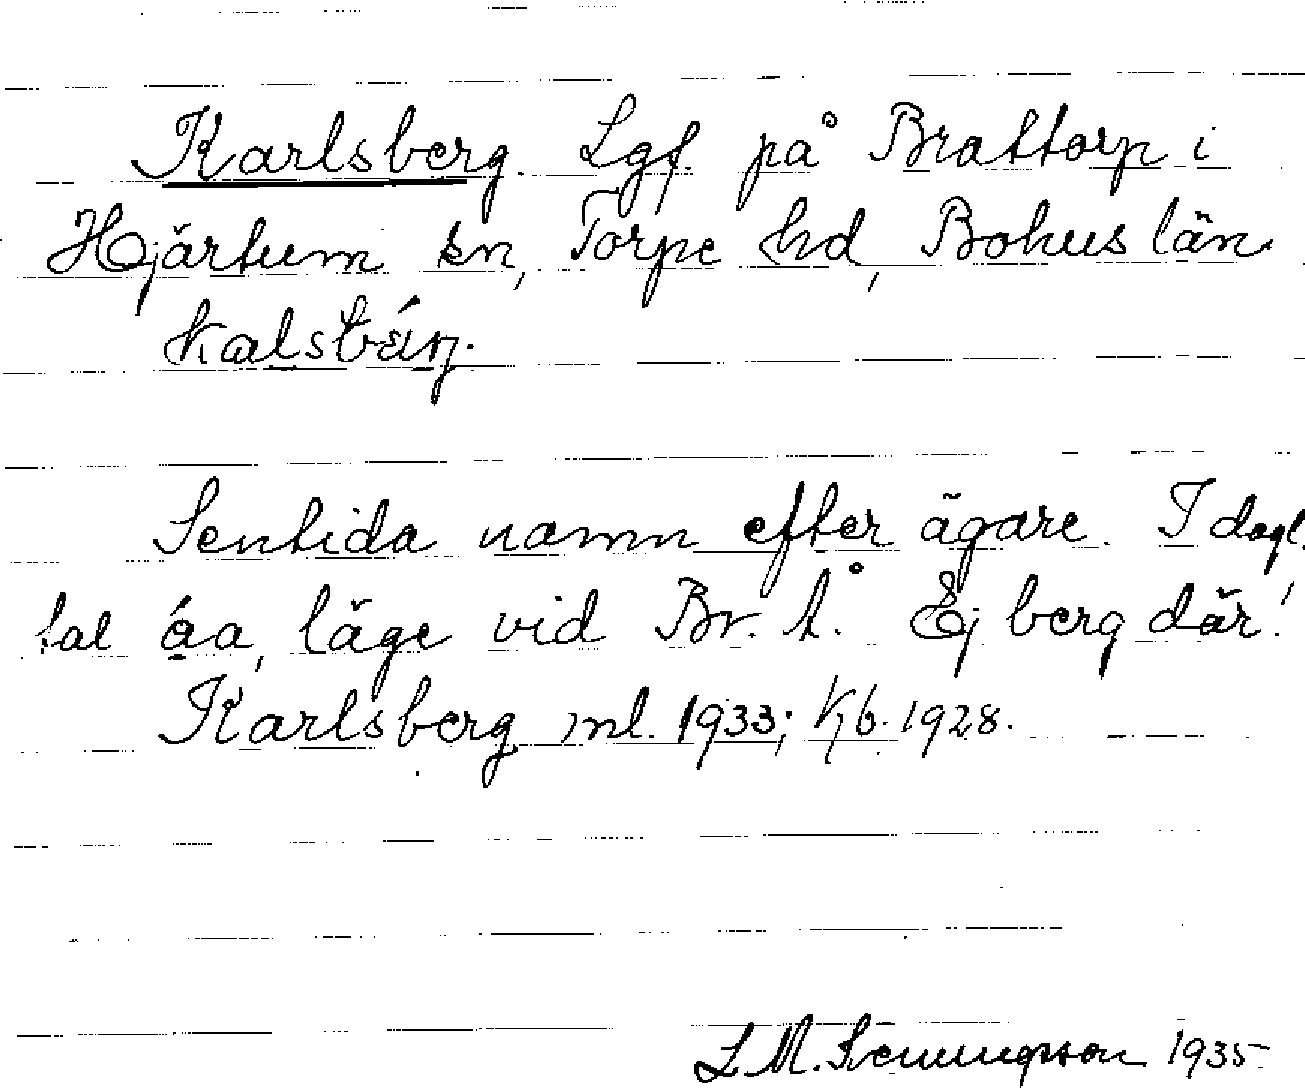 Karlsberg. Lgf. på Brattorp i
Hjärtum sn, Torpe hd, Bohus län.
kalsbäŋ.
Sentida namn efter ägare. I dagl.
tal åa, läge vid Br. Å. Ej berg där!
Karlsberg ml. 1933; Kb. 1928.
L. M. 1935